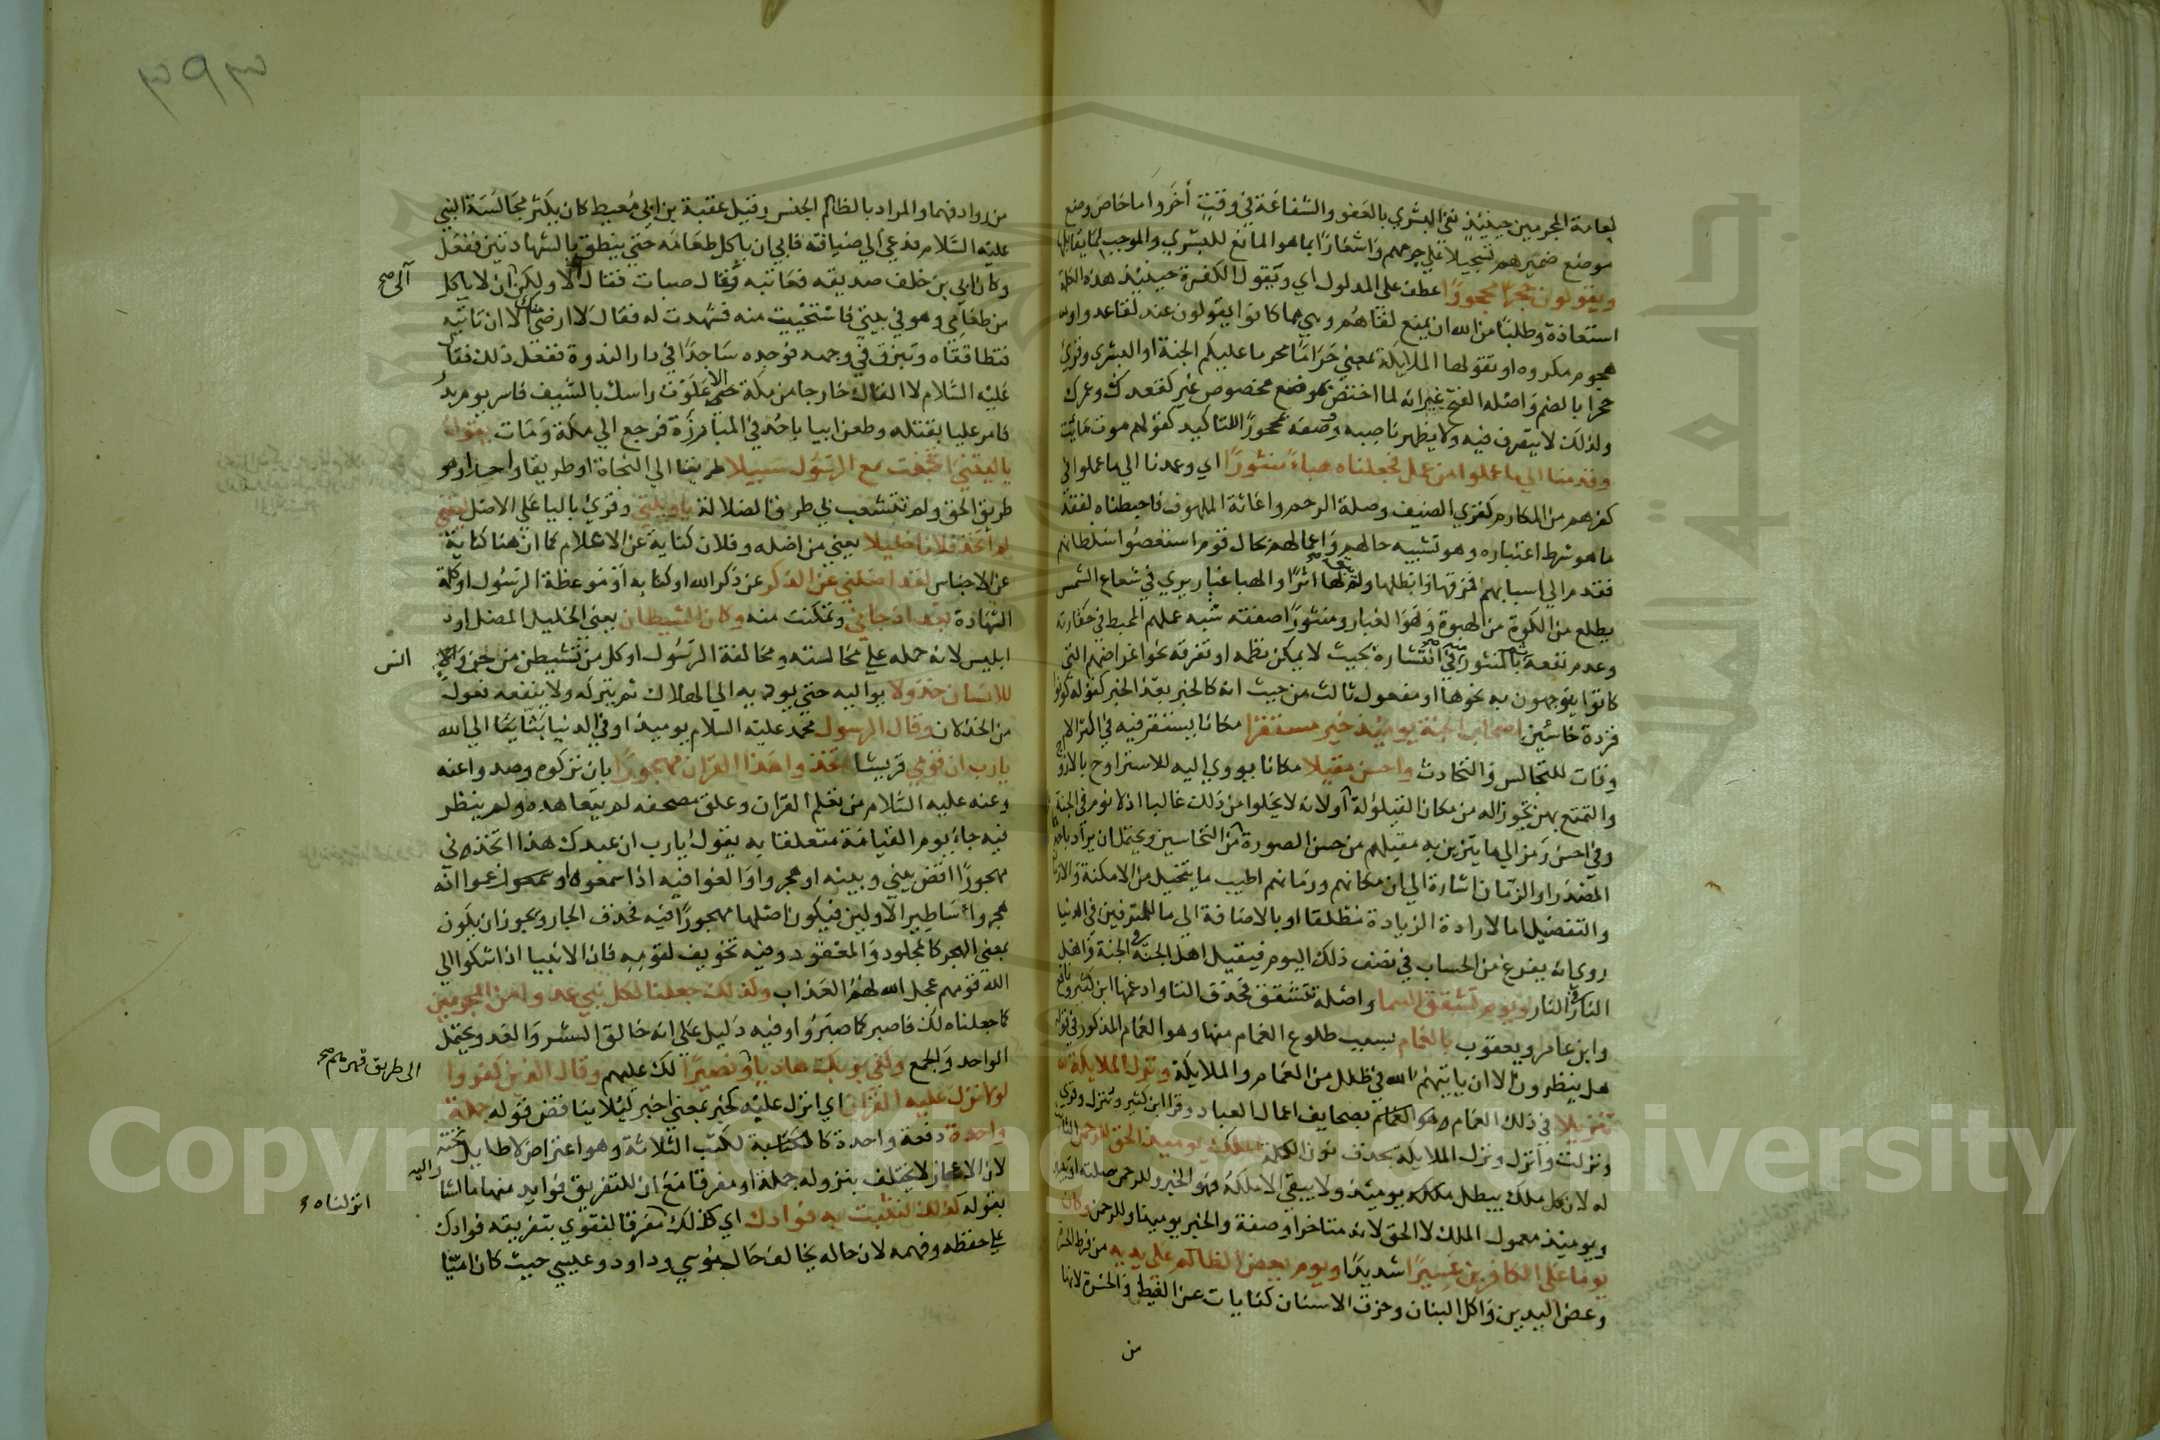 لعامة المجرمين حينئذ نفي البشري بالعفو والشفاعة في وقت آخر واما خاص وضع
موضع ضميرهم تسجيلا علي جرمهم واشعارا بما هو المانع للبشري والموجب لما يقابلها
ويقولون حجرا محجورا عطف علي المدلول اي ويقول الكفرة حينئذ هذه الكلمة
استعاذة وطلبا من الله ان يمنع لقاهم وهي مما كانوا يقولون عند لقا عدو او
هجوم مكروه او تقولها الملايكة بمعني حراما محرما عليكم الجنة او البشري وقري
حجرا بالضم واصله الفتح غير انه لما اختص بموضع مخصوص غير كقعدك وعمرك
ولذلك لا يتصرف فيه ولا يظهر ناصبه ووصفه بمحجورا للتاكيد كقولهم موت مايت
وقدمنا الي ما عملوا من عمل فجعلناه هباء منثورا اي وعمدنا الي ما عملوا في
كفرهم من المكارم كقري الضيف وصلة الرحم واغاثة الملهوف فاحبطناه لفقد
ما هو شرط اعتباره وهو تشبيه حالهم واعمالهم بحال قوم استعصوا سلطانهم
فقدم الي اسبابهم فمزقها وابطلها ولم يبق لها اثرا والهبا غبار يري في شعاع الشمس
يطلع من الكوة من الهبوة وهو الغبار ومنثورا صفته شبه عملهم المحبط في حقارته
وعدم نفعه بالمنثور منه في انتشاره بحيث لا يمكن نظمه او تفرقه نحو اغراضهم التي
كانوا يتوجهون به نحوها او مفعول ثالث من حيث انه كالخبر بعد الخبر كقوله كونوا
قردة خاسئين اصحاب الجنة يومئذ خير مستقرا مكانا يستقر فيه في اكثر الا
وقات للتجالس والتحادث واحسن مقيلا مكانا يووي اليه للاستراوح بالازو
والتمتع بهن تجوزا له من مكان القيلولة او لانه لا يخلوا من ذلك غالبا اذ لا نوم في الجنة
وفي احسن رمز الي ما يتزين به مقيلهم من حسن الصورة من التحاسين ويحتمل ان يراد باحدهما
المصدر او الزمان اشارة الي ان مكانهم وزمانهم اطيب ما يتخيل من الامكنة والازمنة
والتفضيل اما لارادة الزيادة مطلقا او بالاضافة الي ما للمترفين في الدنيا
روي انه يفرغ من الحساب في نصف ذلك اليوم فيقيل اهل الجنة في الجنة واهل
النار في النار ويوم تشقق السما واصله تتشقق فحذف التا وادغمها ابن كثير ونافع
وابن عامر ويعقوب بالغمام بسبب طلوع الغمام منها وهو الغمام المذكور في قوله
هل ينظرون الا ان ياتيهم الله في ظلل من الغمام والملايكة ونزل الملايكة
تنزيلا في ذلك الغمام بصحايف اعمال العباد وقرا ابن كثير وننزل وقري
ونزلت وانزل ونزل الملايكة بحذف نون الكلمة الملك يومئذ الحق للرحمن الثابت
له لان كل ملك يبطل يومئذ ولا يبقي الا ملكه فهو الخبر وللرحمن صلته
ويومئذ معمول الملك لا الحق لانه متاخر او صفة والخبر يومئذ او للرحمن وكان
يوما علي الكافرين عسيرا شديدا ويوم يعض الظالم علي يديه من فرط الحسرة
وعض اليدين واكل البنان وحرق الاسنان كنايات عن الغيظ والحسرة لانها
من
من روادفهما والمراد بالظالم الجنس وقيل عقبة بن ابي معيط كان يكثر مجالسة النبي
عليه السلام فدعي الي ضيافته فابي ان ياكل طعامه حتي ينطق بالشهادتين ففعل
وكان ابي بن خلف صديقه فعاتبه وقال صبات فقال لا ولكن آلي ان لا ياكل
من طعامي وهو في بيتي فاستحييت منه فشهدت له فقال لا ارضي الا ان تاتيه
فتطا قفاه وتبزق في وجهه فوجده ساجدا في دار الندوة ففعل ذلك فقال
عليه السلام لا القاك خارجا من مكة الا علوت راسك بالسيف فاسر يوم بدر
فامر عليا بقتله وطعن ابيا باحد في المبارزة فرجع الي مكة ومات يقول
يا ليتني اتخذت مع الرسول سبيلا طريقا الي النجاة او طريقا واحدا وهو
طريق الحق ولم تتشعب بي طرق الضلالة يا ويلتي وقري باليا علي الاصل ليتني
لم اتخذ فلانا خليلا يعني من اضله وفلان كناية عن الاعلام كما ان هنا كناية
عن الاجناس لقد اضلني عن الذكر عن ذكر الله او كتابه او موعظة الرسول او كلمة
الشهادة بعد اذ جاني وتمكنت منه وكان الشيطان يعني الخليل المضل او
ابليس لانه حمله علي مخالسته ومخالفة الرسول او كل من تشيطن من جن وانس
للانسان خذولا يواليه حتي يوديه الي الهلاك ثم يتركه ولا ينفعه فعول
من الخذلان وقال الرسول محمد عليه السلام يوميذ او في الدنيا بثا يقا الي الله
يا رب ان قومي قريشا اتخذوا هذا القران مهجورا بان تركوه وصدوا عنه
وعنه عليه السلام من تعلم القران وعلق مصحفه لم يتعاهده ولم ينظر
فيه جاء يوم القيامة متعلقا به يقول يا رب ان عبدك هذا اتخذني
مهجورا اقض بيني وبينه او هجروا والغوا فيه اذا سمعوه او زعموا انه
هجر واساطير الاولين فيكون اصله مهجورا فيه فحذف الجار ويجوز ان يكون
بمعني الهجر كالمجلود والمعقود وفيه تخويف لقومه فان الانبيا اذا شكوا الي
الله قومهم عجل الله لهم العذاب وكذلك جعلنا لكل نبي عدوا من المجرمين
كما جعلناه لك فاصبر كما صبروا وفيه دليل علي انه خالق الشر والعدو يحتمل
الواحد والجمع وكفي بربك هاديا ونصيرا لك عليهم وقال الذين كفروا
لولا نزل عليه القران اي انزل عليه كخبر بمعني اخبر ليلا يناقض قوله جملة
واحدة دفعة واحدة كالكتب الثلاثة وهو اعتراض لا طايل تحته
لان الاعجاز لا يختلف بنزوله جملة او مفرقا مع ان للتفريق فوايد منها ما اشار اليه
بقوله كذلك لنثبت به فوادك اي كذلك مفرقا لنقوي بتفريقه فوادك
علي حفظه وفهمه لان حاله يخالف حال موسي وداود وعيسي حيث كان اميا
آلي صح
انس
الي طريق قهرهم صح
انزلناه